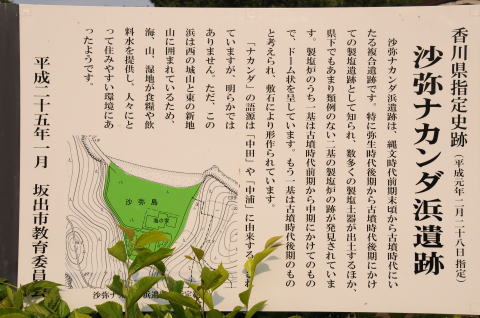 香川県指定史跡(平成元年二月二十八日指定)
沙弥ナカンダ浜遺跡
沙弥ナカンダ浜遺跡は、縄文時代前期末頃から古墳時代にい
たる複合遺跡です。特に弥生時代後期から古墳時代後期にかけ
ての製塩遺跡として知られ、数多くの製塩土器が出土するほか、
県下でもあまり類例のない二基の製塩炉の跡が発見されていま
す。製塩炉のうち一基は古墳時代前期から中期にかけてのもの
で、ドーム状を呈しています。もう一基は古墳時代後期のもの
と考えられ、敷石により形作られています。
「ナカンダ」の語源は「中田」や「中浦」に由来する
ていますが、明らかでは
ありません。ただ、この
浜は西の城山と東の新地
山に囲まれているため、
海、山、湿地が食糧や飲
料水を提供し、人々にと
って住みやすい環境にあ
ったようです。
平成二十五年一月 坂出市教育委員会
沙弥島
沙弥ナカンダ浜遺